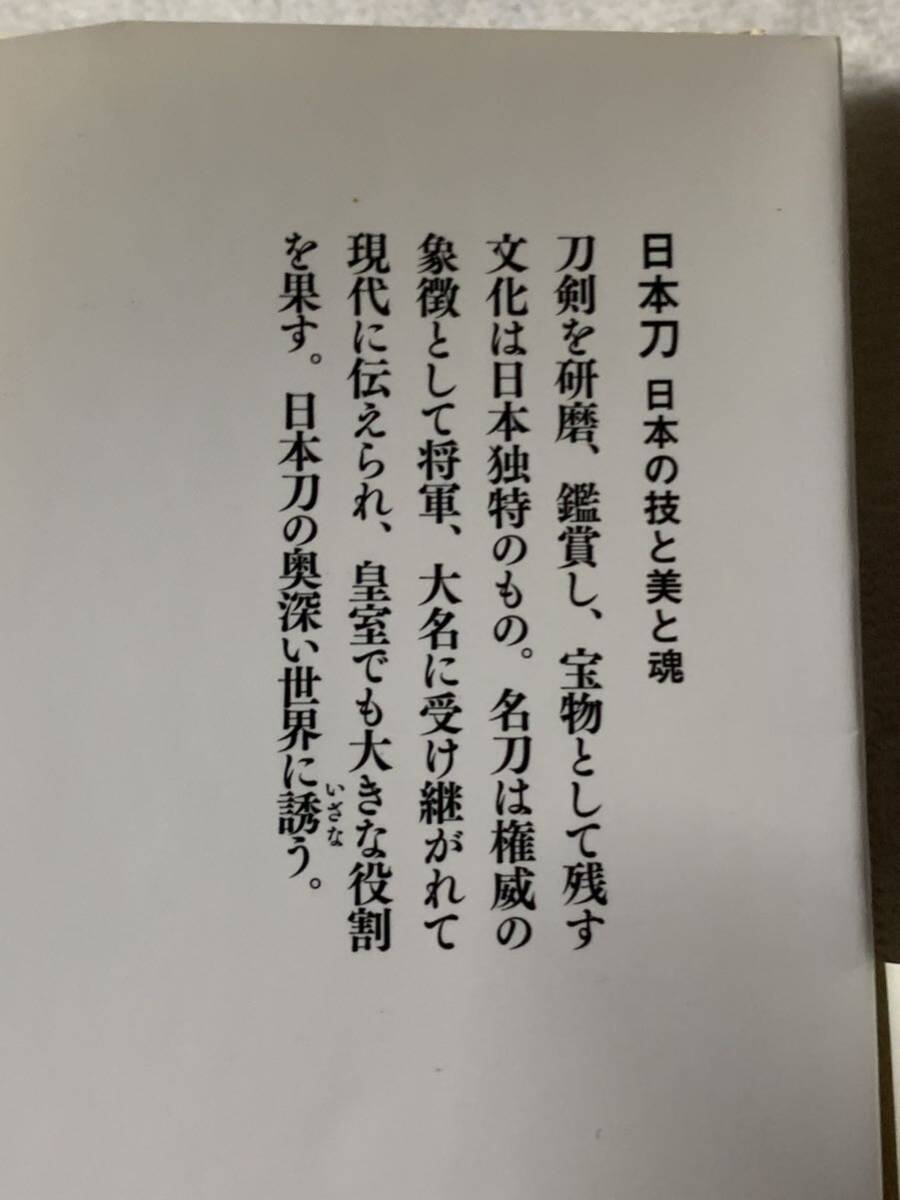 日本刀 日本の技と美と魂
刀剣を研磨、鑑賞し、宝物として残す
文化は日本独特のもの。名刀は権威の
象徴として将軍、大名に受け継がれて
現代に伝えられ、皇室でも大きな役割
を果す。日本刀の奥深い世界に誘う。
いざな